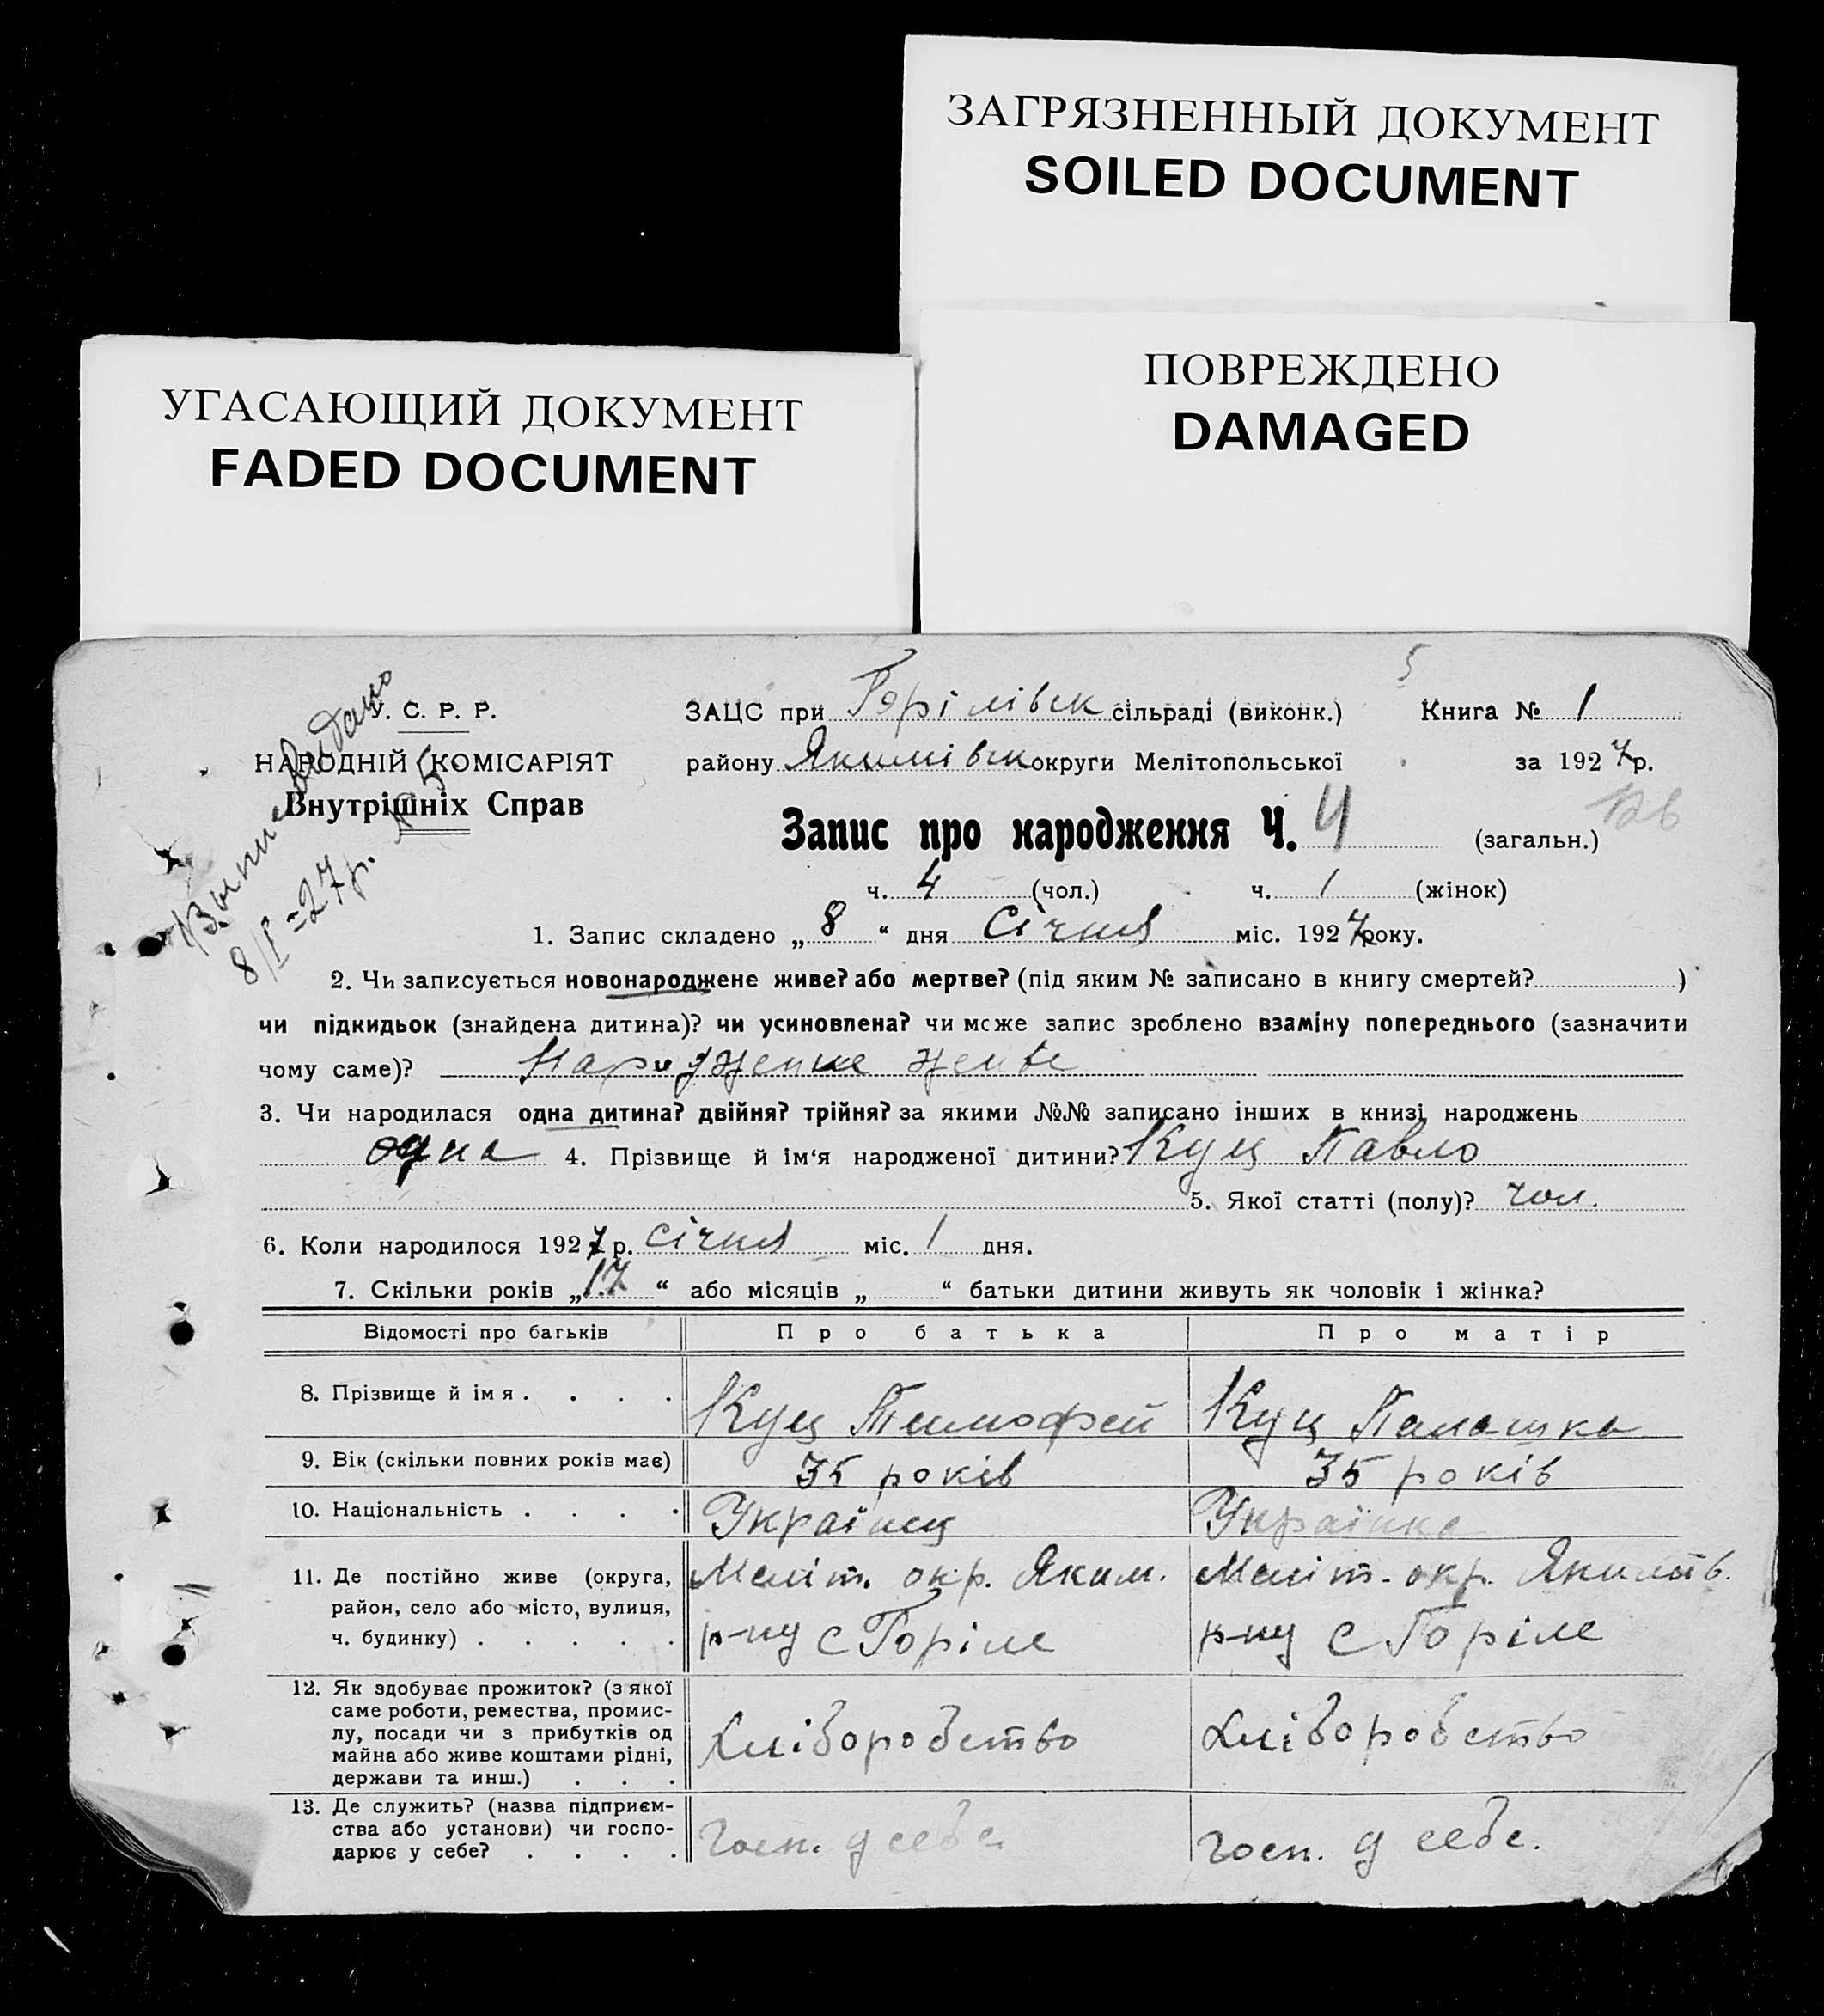 ЗАГРЯЗНЕННЫЙ ДОКУМЕНТ
SOILED DOCUMENT
УГАСАЮЩИЙ ДОКУМЕНТ
FADED DOCUMENT
ПОВРЕЖДЕНО
DAMAGED
5
У. С. Р. Р.
НАРОДНІЙ КОМІСАРІЯТ
Внутрішніх Справ
видано
8/I=27р. №5
ЗАЦС при Горілівск сільраді (виконк.) Книга № 1
району Якимівск округи Мелітопольської за 1927р.
Запис про народження Ч. 4 (загальн.)
ч. 4 (чол.) ч. 1 (жінок)
1. Запис складено „ 8 “ дня Січня міс. 1927року.
2. Чи записується новонароджене живе? або мертве? (під яким № записано в книгу смертей? )
чи підкидьок (знайдена дитина)? чи усиновлена? чи може запис зроблено взаміну попереднього (зазначити
чому саме)? Народженне живе
3. Чи народилася одна дитина? двійня? трійня? за якими №№ записано інших в книзі народжень
одна 4. Прізвище й ім‘я народженої дитини? Куц Павло
5. Якої статті (полу)? чол.
6. Коли народилося 1927 р. січня міс. 1 дня.
7. Скільки років „ 17 “ або місяців „ “ батьки дитини живуть як чоловік і жінка?
Відомості про батьків Про батька Про матір
8. Прізвище й імя . . . . Куц Тимофей Куц Палашка
9. Вік (скільки повних років має) 35 років 35 років
10. Національність . . . . Українец Українка
11. Де постійно живе (округа, Меліт. окр. Яким. Меліт. окр. Якимів.
район, село або місто, вулиця,
ч. будинку) . . . . . р-ну с Горіле р-ну с Горіле
12. Як здобуває прожиток? (з якої
саме роботи, ремества, промис-
лу, посади чи з прибутків од Хліборобство Хліборобство
майна або живе коштами рідні,
держави та инш.) . . .
13. Де служить? (назва підприєм-
ства або установи) чи госпо- Госп. у себе. госп. у себе.
дарює у себе? . . . .